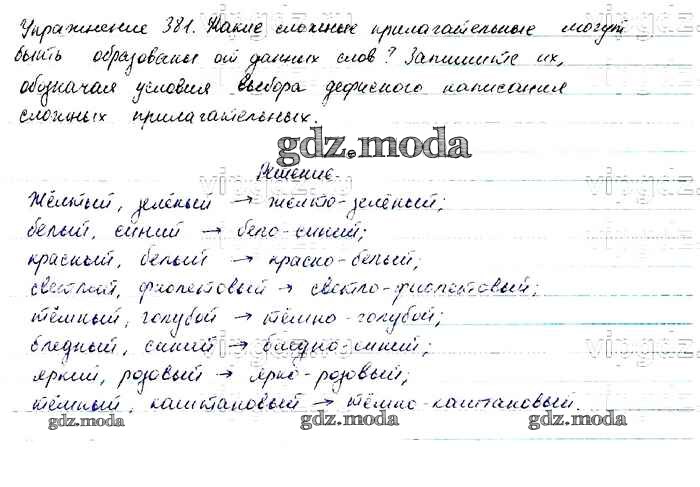 Упражнение 381. Какие сложные прилагательные могут
быть образованы от данных слов? Запишите их,
обозначая условия выбора дефисного написания
сложных прилагательных.
gdz.moda
Решение.
Жёлтый, зелёный → жёлто-зелёный;
белый, синий → бело-синий;
красный, белый → красно-белый;
светлый, фиолетовый → светло-фиолетовый;
тёмный, голубой → тёмно-голубой;
бледный, синий → бледно-синий;
яркий, розовый → ярко-розовый;
тёмный, каштановый → тёмно-каштановый.
gdz.moda gdz.moda gdz.moda